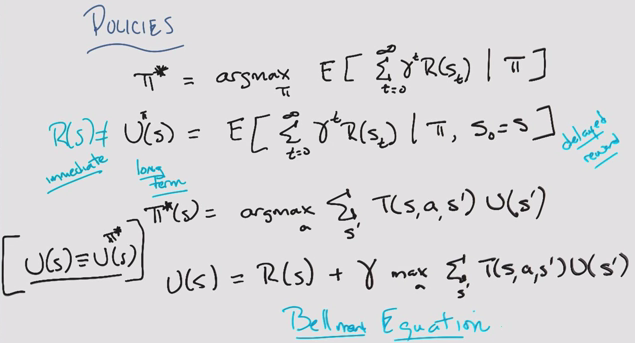 POLICIES
π* = argmax_π E[ Σ_{t=0}^∞ γ^t R(s_t) | π ]
R(s) ≠ U^π(s) = E[ Σ_{t=0}^∞ γ^t R(s_t) | π, s_0 = s ]
immediate long term delayed reward
π*(s) = argmax_a Σ_{s'} T(s,a,s') U(s')
[ U(s) ≡ U^{π*}(s) ]
U(s) = R(s) + γ max_a Σ_{s'} T(s,a,s') U(s')
Bellman Equation